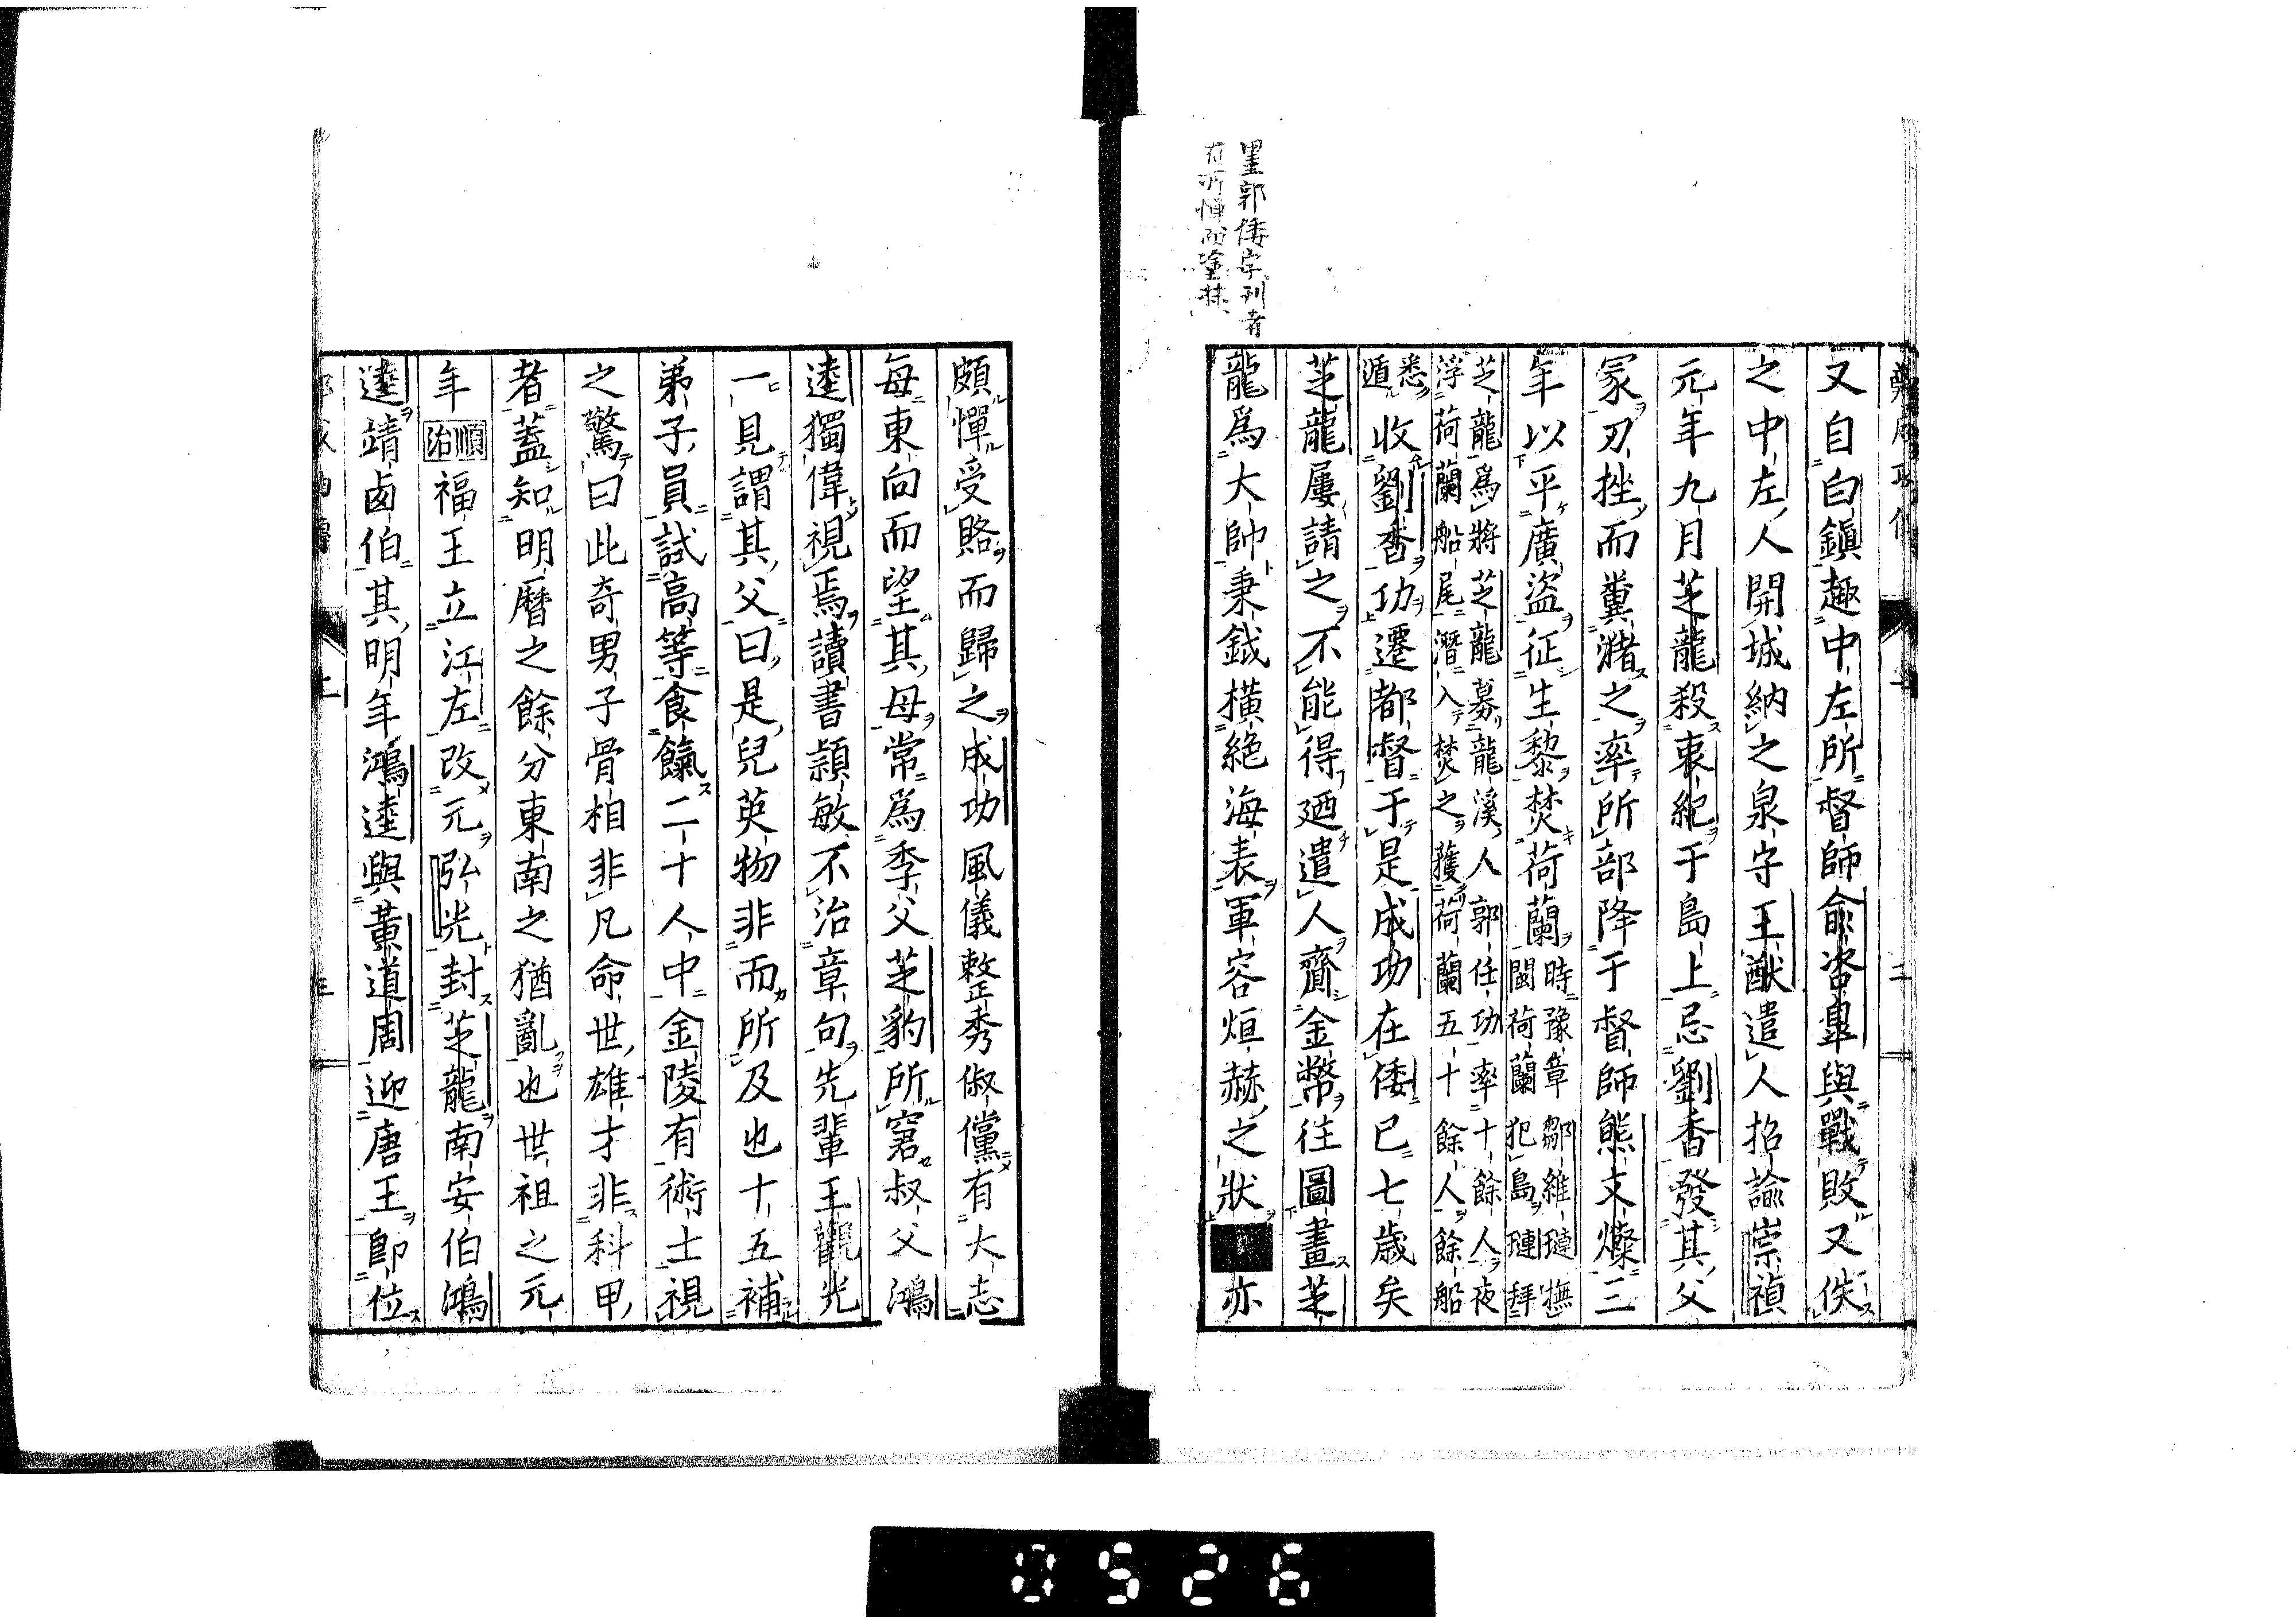 墨郭倭字刊者
有所憚而塗抹
又自白鎮趣中左所督師俞咨皐與戰敗又佚
之中左人開城納之泉守王猷遣人招諭崇禎
元年九月芝龍殺衷紀于島上忌劉香發其父
冢刃挫而糞潴之率所部降于督師熊文燦三
年以平廣盜征生黎焚荷蘭時豫章鄒維璉撫
閩荷蘭犯島璉拜
芝龍爲將芝龍募龍溪人郭任功率十餘人夜
浮荷蘭船尾潛入焚之獲荷蘭五十餘人餘船
悉
遁收劉香功遷都督于是成功在倭已七歳矣
芝龍屢請之不能得廼遣人齎金幣往圖畫芝
龍爲大帥秉鉞橫絶海表軍容烜赫之狀亦
頗憚受賂而歸之成功風儀整秀俶儻有大志
毎東向而望其母常爲季父芝豹所窘叔父鴻
逵獨偉視焉讀書穎敏不治章句先輩王觀光
一見謂其父曰是兒英物非而所及也十五補
弟子員試高等食餼二十人中金陵有術士視
之驚曰此奇男子骨相非凡命世雄才非科甲
者蓋知明曆之餘分東南之猶亂也世祖之元
年順治福王立江左改元弘光封芝龍南安伯鴻
逵靖鹵伯其明年鴻逵與黄道周迎唐王即位